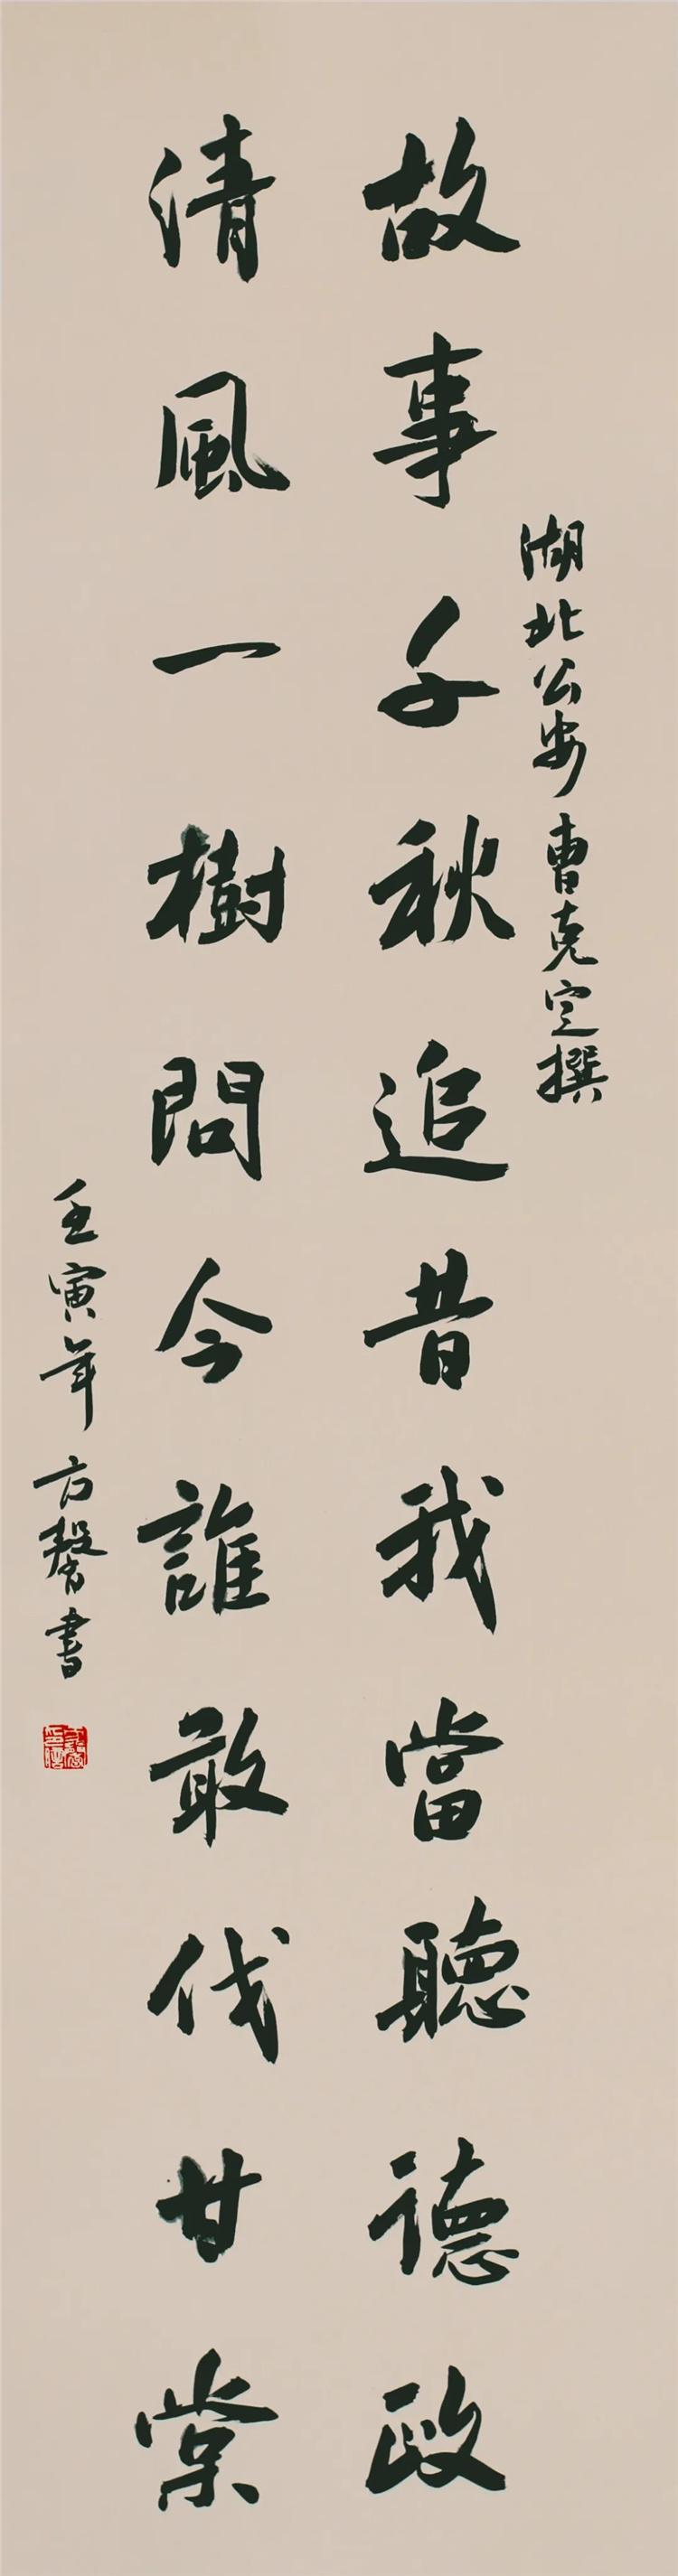 湖北公安曹克定撰
故事千秋追昔我當聽德政
清風一樹問今誰敢伐甘棠
壬寅年方馨書